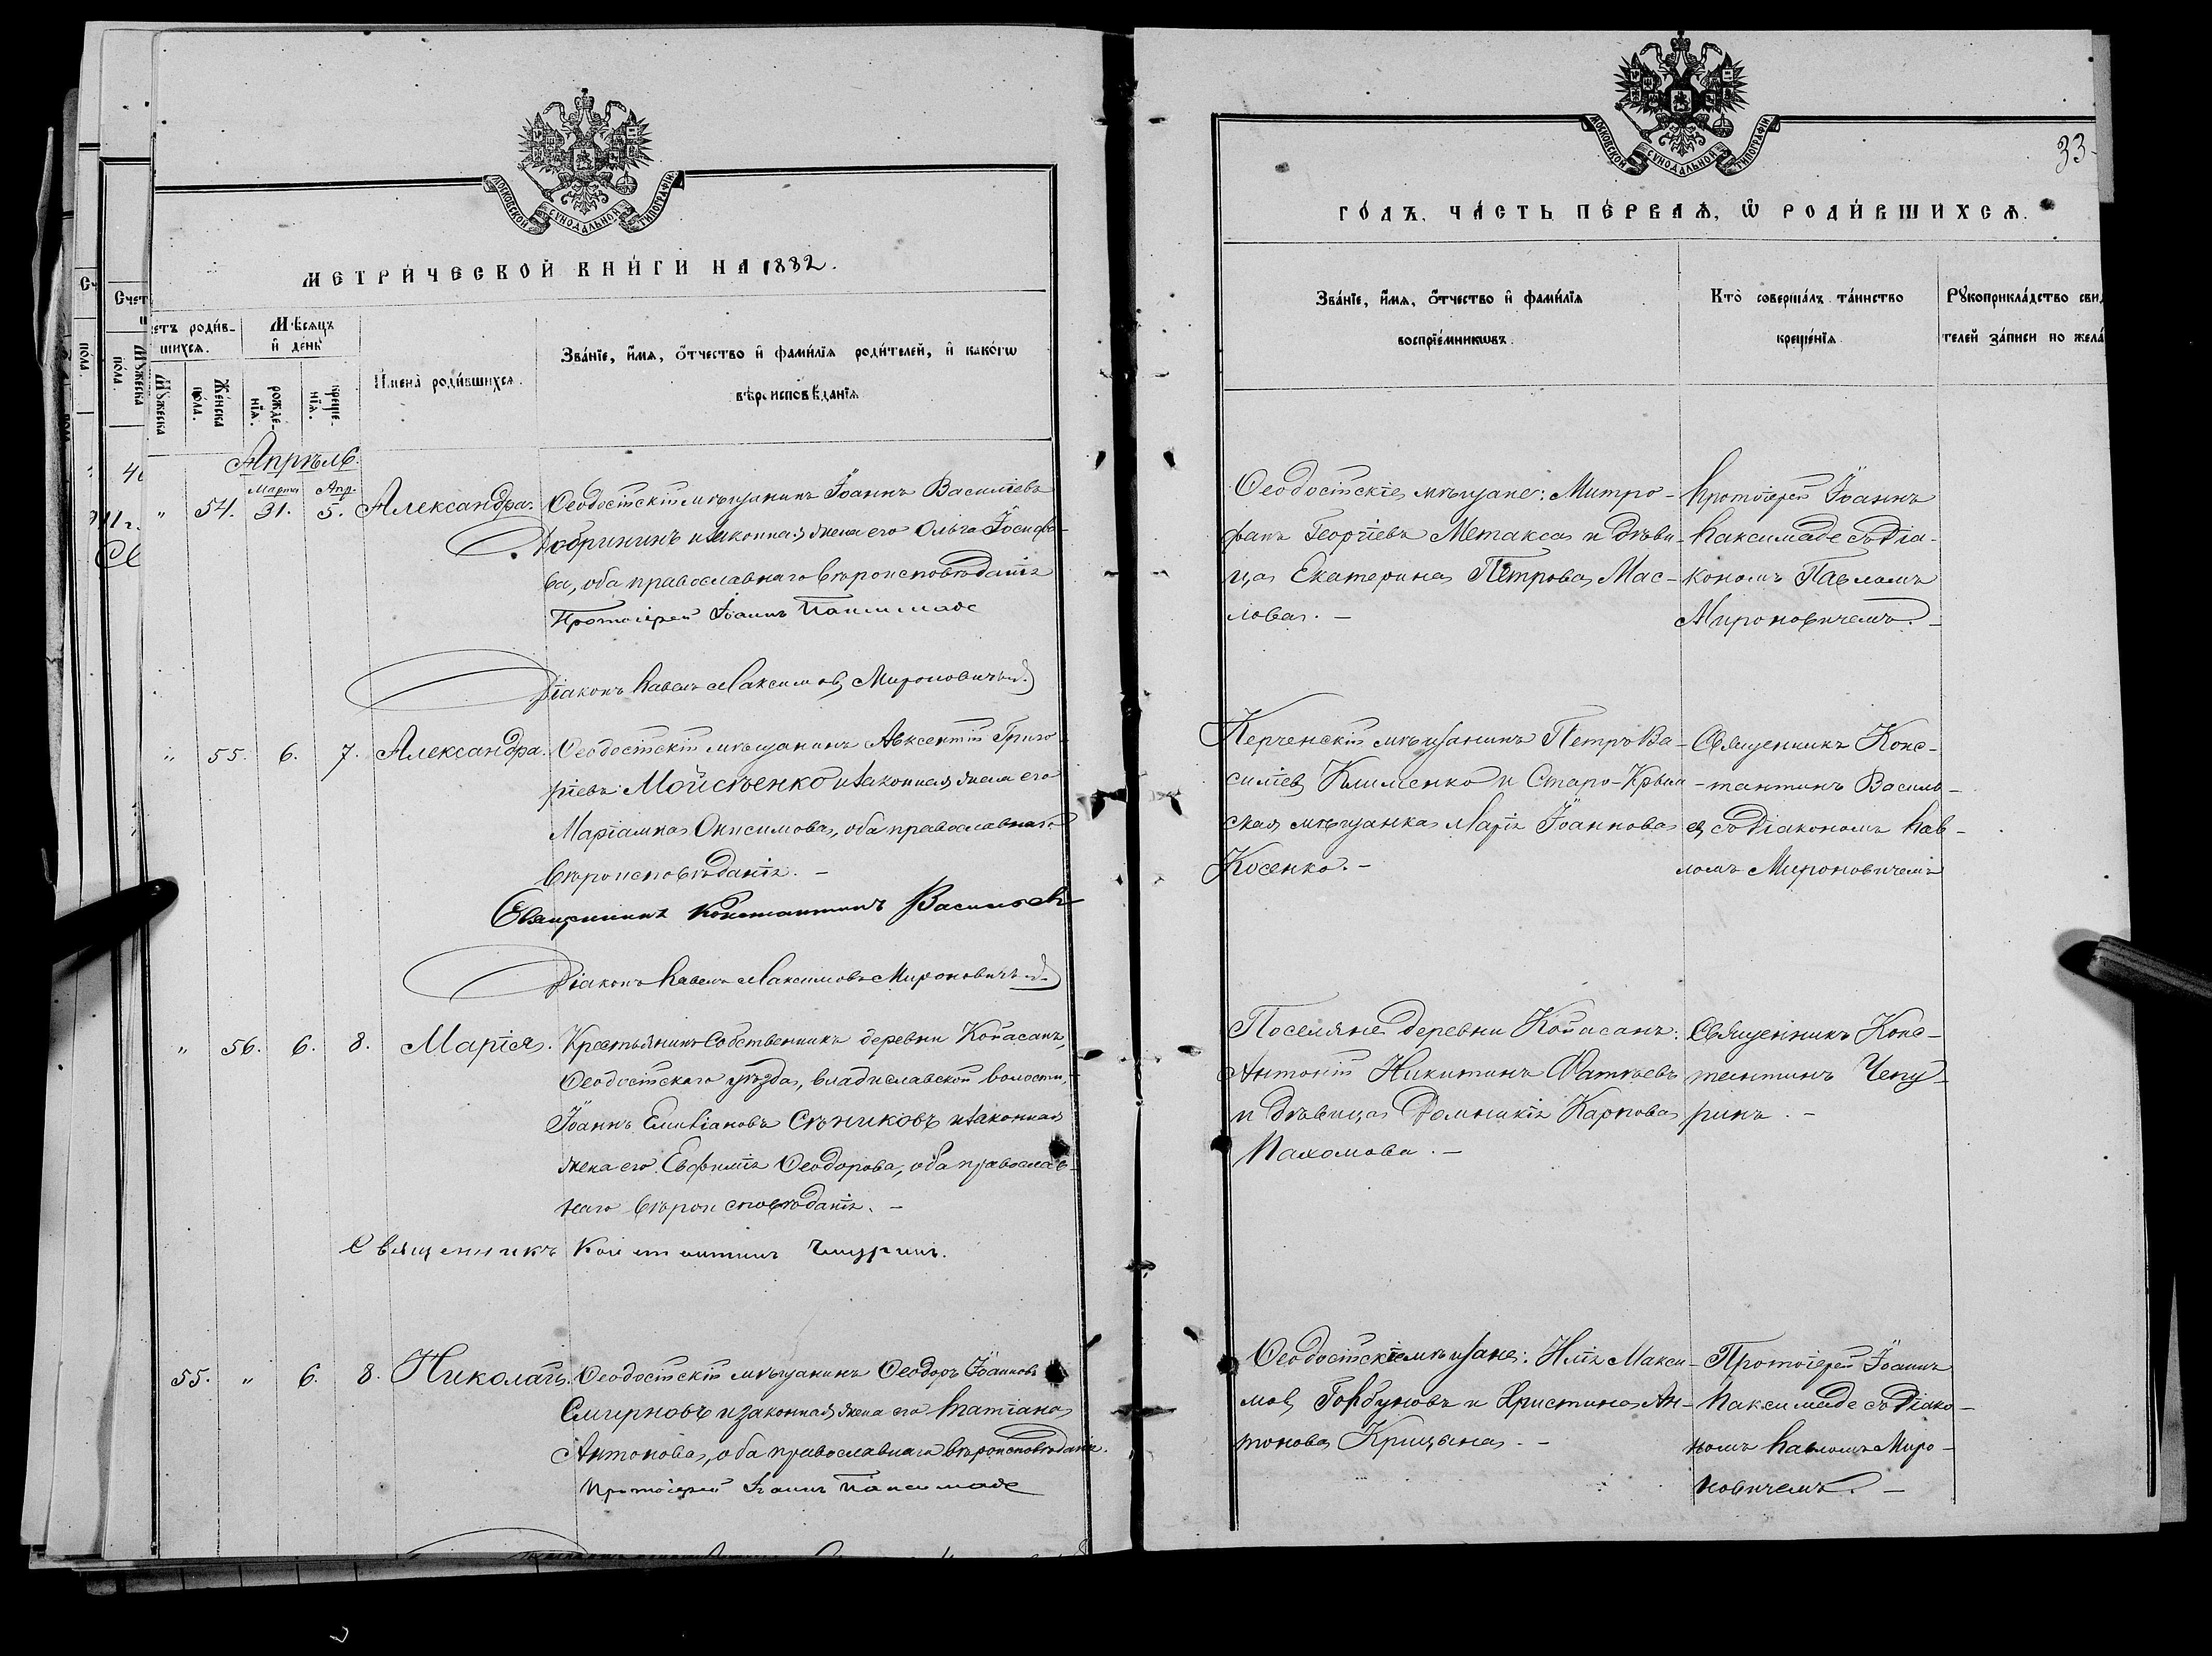 МОСКОВСКОЙ СѴНОДАЛЬНОЙ ТИПОГРАФІИ
МЕТРИ́ЧЕСКОЙ КНИ́ГИ НА 1882.
Счетъ роди́в-
шихсѧ.
Мѣсѧцъ
и҆ де́нь
Имена̀ роди́вшихсѧ.
Зва́нїе, и҆́мѧ, о҆́тчество и҆ фами́лїѧ роди́телей, и҆ како́гѡ
вѣроисповѣ́данїѧ
Мꙋ́жеска
Же́нска
по́ла.
рожде-
нїѧ.
креще-
нїѧ.
Апрѣль.
Марта Апр.
" 54. 31. 5. Александра. Ѳеодосійскій мѣщанинъ Іоаннъ Василіевъ
Добрининъ и законная жена его Ольга Іосифо-
ва, оба православнаго вѣроисповѣданія
Протоіерей Іоаннъ Паксимаде
Діаконъ Павелъ Максимовъ Мироновичъ
" 55. 6. 7. Александра. Ѳеодосійскій мѣщанинъ Авксентій Григо-
ріевъ Мойсѣенко и законная жена его
Маріамна Онисимова, оба православнаго
вѣроисповѣданія. -
Священникъ Константинъ Васильевъ
Діаконъ Павелъ Максимовъ Мироновичъ
" 56. 6. 8. Марія. Крестьянинъ Собственникъ деревни Койасанъ,
Ѳеодосійскаго уѣзда, Владиславской волости,
Іоаннъ Емиліановъ Сѣниковъ и законная
жена его Евфимія Ѳеодорова, оба православ-
наго вѣроисповѣданія. -
Священникъ Константинъ Чепуринъ.
55. " 6. 8. Николай. Ѳеодосійскій мѣщанинъ Ѳеодоръ Іоанновъ
Смирновъ и законная жена его Татіана
Антонова, оба православнаго вѣроисповѣданія.
Протоіерей Іоаннъ Паксимаде
МОСКОВСКОЙ СѴНОДАЛЬНОЙ ТИПОГРАФІИ
33
ГО́ДЪ. ЧА́СТЬ ПЕ́РВАѦ, Ѡ РОДИ́ВШИХСѦ.
Зва́нїе, и҆́мѧ, о҆́тчество и҆ фами́лїѧ
воспрїе́мникѡвъ.
Кто̀ соверша́лъ та́инство
креще́нїѧ
Рꙋкоприкла́дство сви
телей за́писи по жела
Ѳеодосійскіе мѣщане: Митро-
фанъ Георгіевъ Метакса и дѣви-
ца Екатерина Петрова Мас-
лова. -
Протоіерей Іоаннъ
Паксимаде съ Діа-
кономъ Павломъ
Мироновичемъ. -
Керченскій мѣщанинъ Петръ Ва-
силіевъ Клименко и Старо-Крым
ская мѣщанка Марія Іоаннова
Косенко. -
Священникъ Конс-
-тантинъ Василь-
евъ съ Діакономъ Пав-
ломъ Мироновичемъ
Поселяне деревни Койасанъ:
Антоній Никитинъ Фатѣевъ
и дѣвица Домникія Карпова
Пахомова. -
Священникъ Конс-
тантинъ Чепу-
ринъ. -
Ѳеодосійскіе мѣщане: Илія Макси-
мовъ Горбуновъ и Христина Ан-
тонова Крицына. -
Протоіерей Іоаннъ
Паксимаде съ Діако-
номъ Павломъ Миро-
новичемъ. -